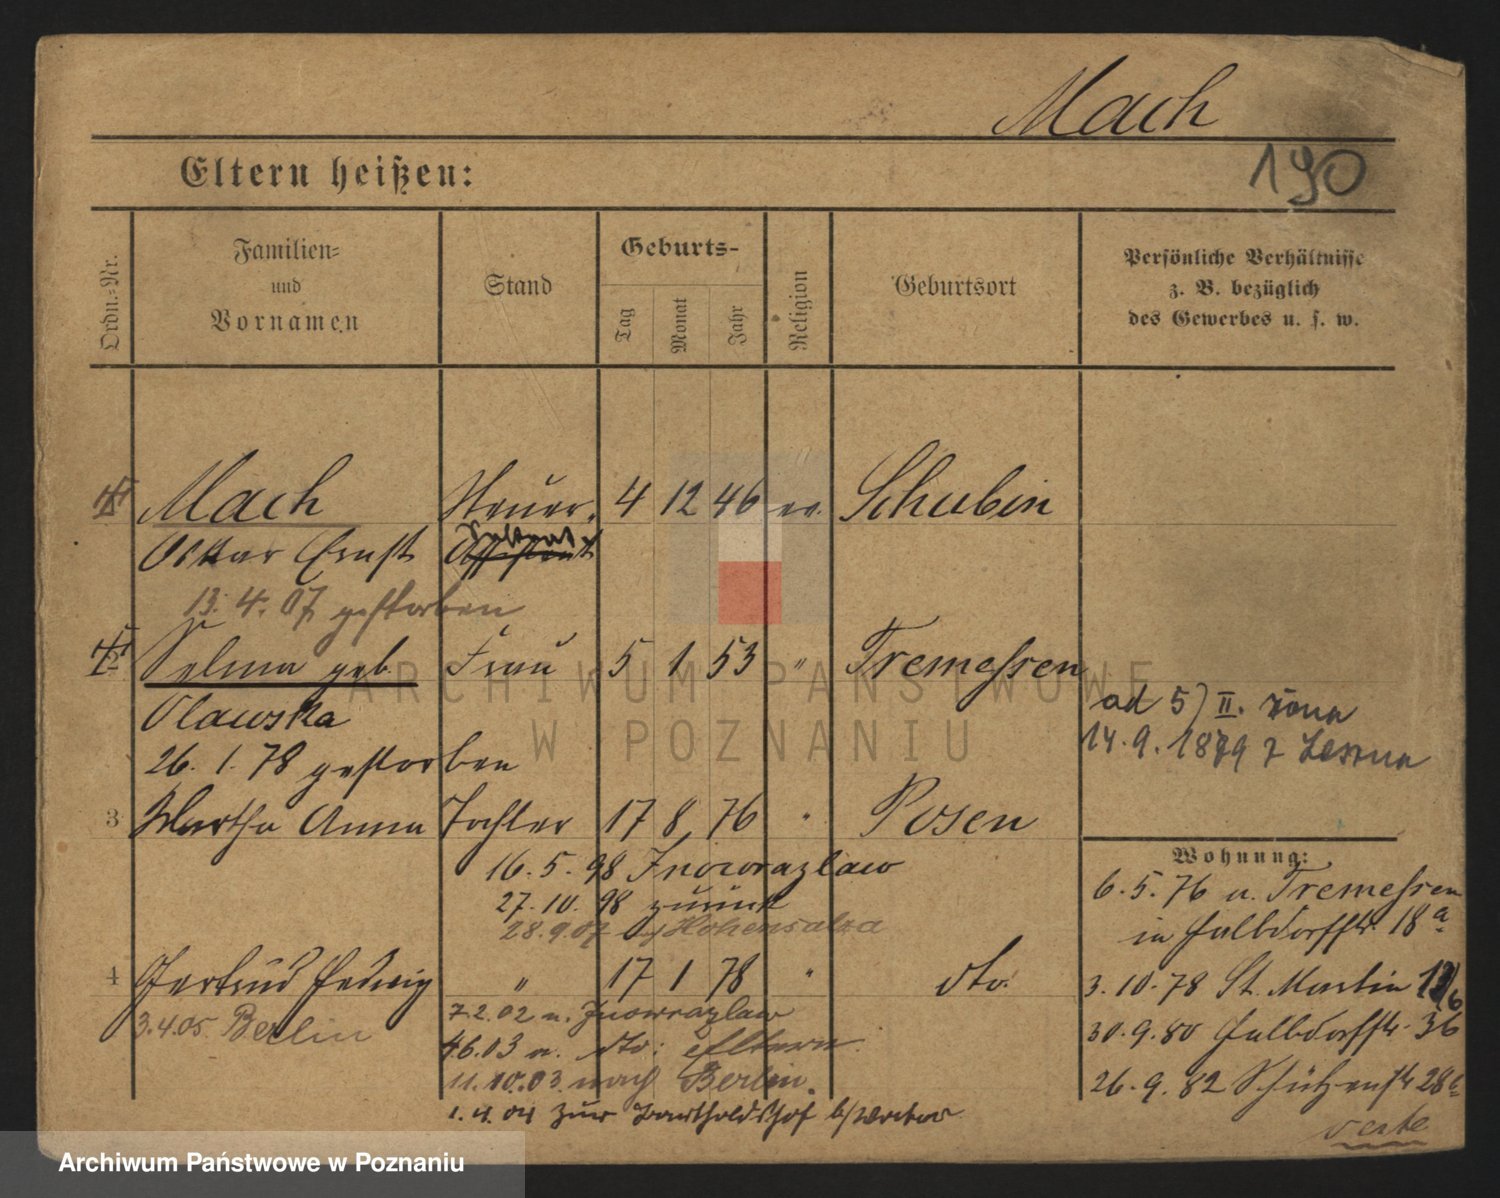 Mach
Eltern heißen:
190
Ordn.-Nr.
Familien-
und
Vornamen
Stand
Geburts-
Tag
Monat
Jahr
Religion
Geburtsort
Persönliche Verhältnisse
z. B. bezüglich
des Gewerbes u. s. w.
1 Mach Steuer- 4 12 46 ev. Schubin
Oskar Ernst Assistent
13. 4. 07 gestorben
2 Selma geb. Frau 5 1 53 " Tremessen
Olawska
26. 1. 78 gestorben
ad 5) II. żona
14. 9. 1879 z
3 Martha Anna Tochter 17 8 76 " Posen
16. 5. 98 Inowrazlaw
27. 10. 98 zurück
28.9.07 Hohensalza
4 Gertrud Hedwig " 17 1 78 " dto.
3.4.05 Berlin
7.2.02 n. Inowrazlaw
6.03 a. dto: Eltern
11.10.03 nach Berlin.
1.4.04 zur b/
Wohnung:
6. 5. 76 v. Tremessen
in Halbdorfstr 18a
3. 10. 78 St. Martin
30. 9. 80 Halbdorfstr. 36
26. 9. 82 Schützenstr 28
verte
ARCHIWUM PAŃSTWOWE
W POZNANIU
Archiwum Państwowe w Poznaniu